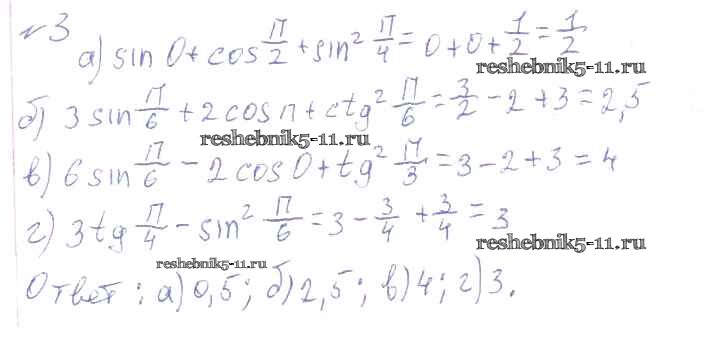 №3
а) sin 0 + cos π/2 + sin² π/4 = 0 + 0 + 1/2 = 1/2
reshebnik5-11.ru
б) 3 sin π/6 + 2 cos π + ctg² π/6 = 3/2 - 2 + 3 = 2,5
reshebnik5-11.ru
в) 6 sin π/6 - 2 cos 0 + tg² π/3 = 3 - 2 + 3 = 4
г) 3 tg π/4 - sin² π/6 = 3 - 3/4 + 3/4 = 3
reshebnik5-11.ru
reshebnik5-11.ru
Ответ: а) 0,5; б) 2,5; в) 4; г) 3.